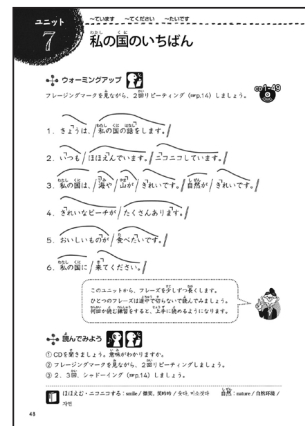 ～ています ～てください ～たいです
ユニット
7
私の国のいちばん
ウォーミングアップ
CD1-49
フレージングマークを見ながら、2回リピーティング（p.14）しましょう。
1. きょうは、/私の国の話をします。//
2. いつも/ほほえんでいます。//ニコニコしています。//
3. 私の国は、/海や/山が/きれいです。//自然が/きれいです。//
4. きれいなビーチが/たくさんあります。//
5. おいしいものが/食べたいです。//
6. 私の国に/来てください。//
このユニットから、フレーズを少しずつ長くします。
ひとつのフレーズは途中で切らないで読んでみましょう。
何回か読む練習をすると、上手に読めるようになります。
読んでみよう
① CDを聞きましょう。意味がわかりますか。
② フレージングマークを見ながら、2回リピーティングしましょう。
③ 2、3回、シャドーイング（p.14）しましょう。
ほほえむ・ニコニコする：smile / 微笑、
自然：nature / 自然环境 /
자연
48